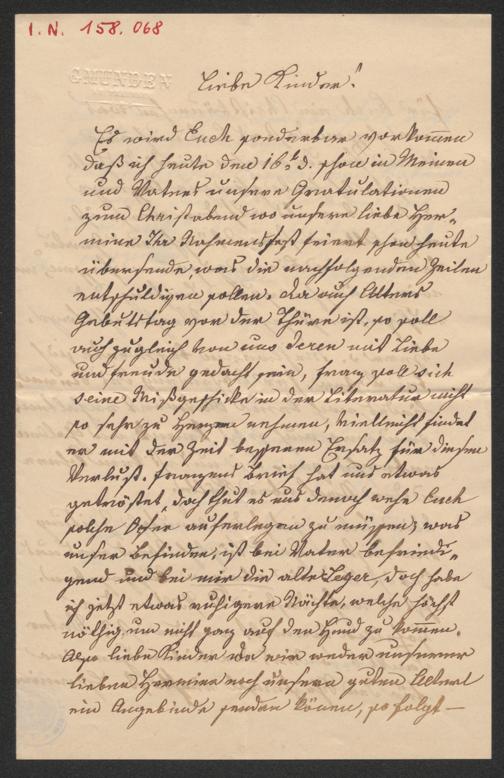 I.N. 158.068
GMUNDEN
Liebe Kinder!
Es wird Euch sonderbar vorkommen
daß ich heute den 16t d. schon in Meinen
und Vaters unsere Gratulationen
zum Christabend wo unsere liebe Her-
mine Ihr Nahmensfest feiert schon heute
übersende, was die nachfolgenden Zeilen
entschuldigen sollen. Da auch
Gebutstag vor der Thüre ist, so soll
auch zugleich von uns deren mit Liebe
und freude gedacht sein, franz soll sich
seine Mißgeschicke in der Literatur nicht
so sehr zu Herzen nehmen, vielleicht findet
er mit der Zeit besseren Ersatz für diesen
Verlust. franzens Brief hat uns etwas
getröstet, doch thut es uns denoch wehe Euch
solche Opfer auferlegen zu müssen, was
unser Befinden, ist bei Vater befriedi-
gend und bei mir die alte Leger, doch habe
ich jetzt etwas ruhigere Nächte, welche höchst
nöthig um nicht ganz auf den Hund zu kommen.
Also liebe Kinder da wir weder unserer
lieben Hermine noch unsern guten
ein Angebinde senden könen, so folgt —